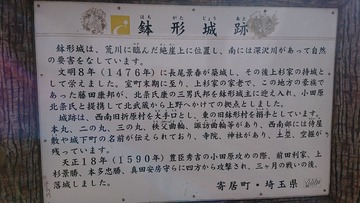 はち がた じょう あと
鉢形城跡
鉢形城は、荒川に臨んだ絶崖上に位置し、南には深沢川があって自然
の要害をなしています。
文明8年（1476年）に長尾景春が築城し、その後上杉家の持城と
して栄えました。室町末期に至り、上杉家の家老で、この地方の豪族で
あった藤田康邦が、北条氏康の三男氏邦を鉢形城主に迎え入れ、小田原
北条氏と提携して北武蔵から上野へかけての拠点としました。
城跡は、西南旧折原村を大手口とし、東の旧鉢形村を搦手としています。
本丸、二の丸、三の丸、秩父曲輪、諏訪曲輪等があり、西南部には侍屋
敷や城下町の名前が伝えられており、寺院、神社があり、土塁、空掘が
残っています。
天正18年（1590年）豊臣秀吉の小田原攻めの際、前田利家、上
杉景勝、本多忠勝、真田安房守らに四方から攻撃され、三ヶ月の戦いの後、
落城しました。
寄居町・埼玉県